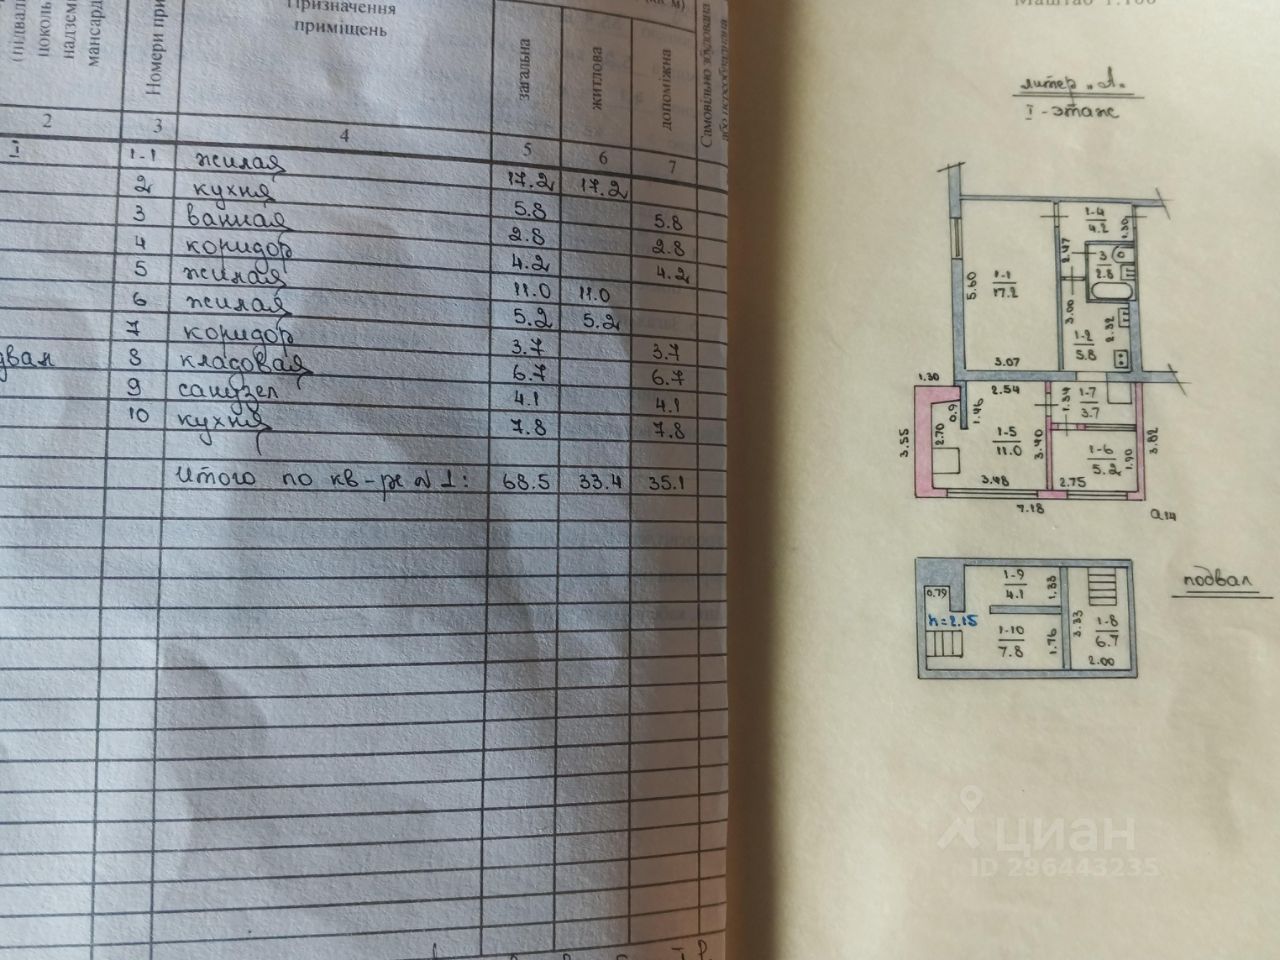 Призначення
приміщень
(підваль
поколь
надземн
мансард
Номери при
загальна
житлова
допоміжна
Самовільно збудована
або переобладнана
2 3 4 5 6 7
I 1-1 жилая 17.2 17.2
2 кухня 5.8 5.8
3 ванная 2.8 2.8
4 коридор 4.2 4.2
5 жилая 11.0 11.0
6 жилая 5.2 5.2
7 коридор 3.7 3.7
двал 8 класовая 6.7 6.7
9 санузел 4.1 4.1
10 кухня 7.8 7.8
Итого по кв-ре N 1: 68.5 33.4 35.1
Масштаб 1:100
литер „А"
I - этаж
1-4
4.2
1.30
2.47
3
2.8
5.60
1-1
17.2
3.00
2.32
1-2
5.8
3.07
1.30
2.54
0.9
1.46
1.34
1-7
3.7
3.55
2.70
1-5
11.0
3.40
1-6
5.2
1.90
3.82
3.48
2.75
7.18
подвал
1-9
4.1
1.33
0.79
h=2.15
1-10
7.8
1.76
3.33
1-8
6.7
2.00
циан
ID 296443235